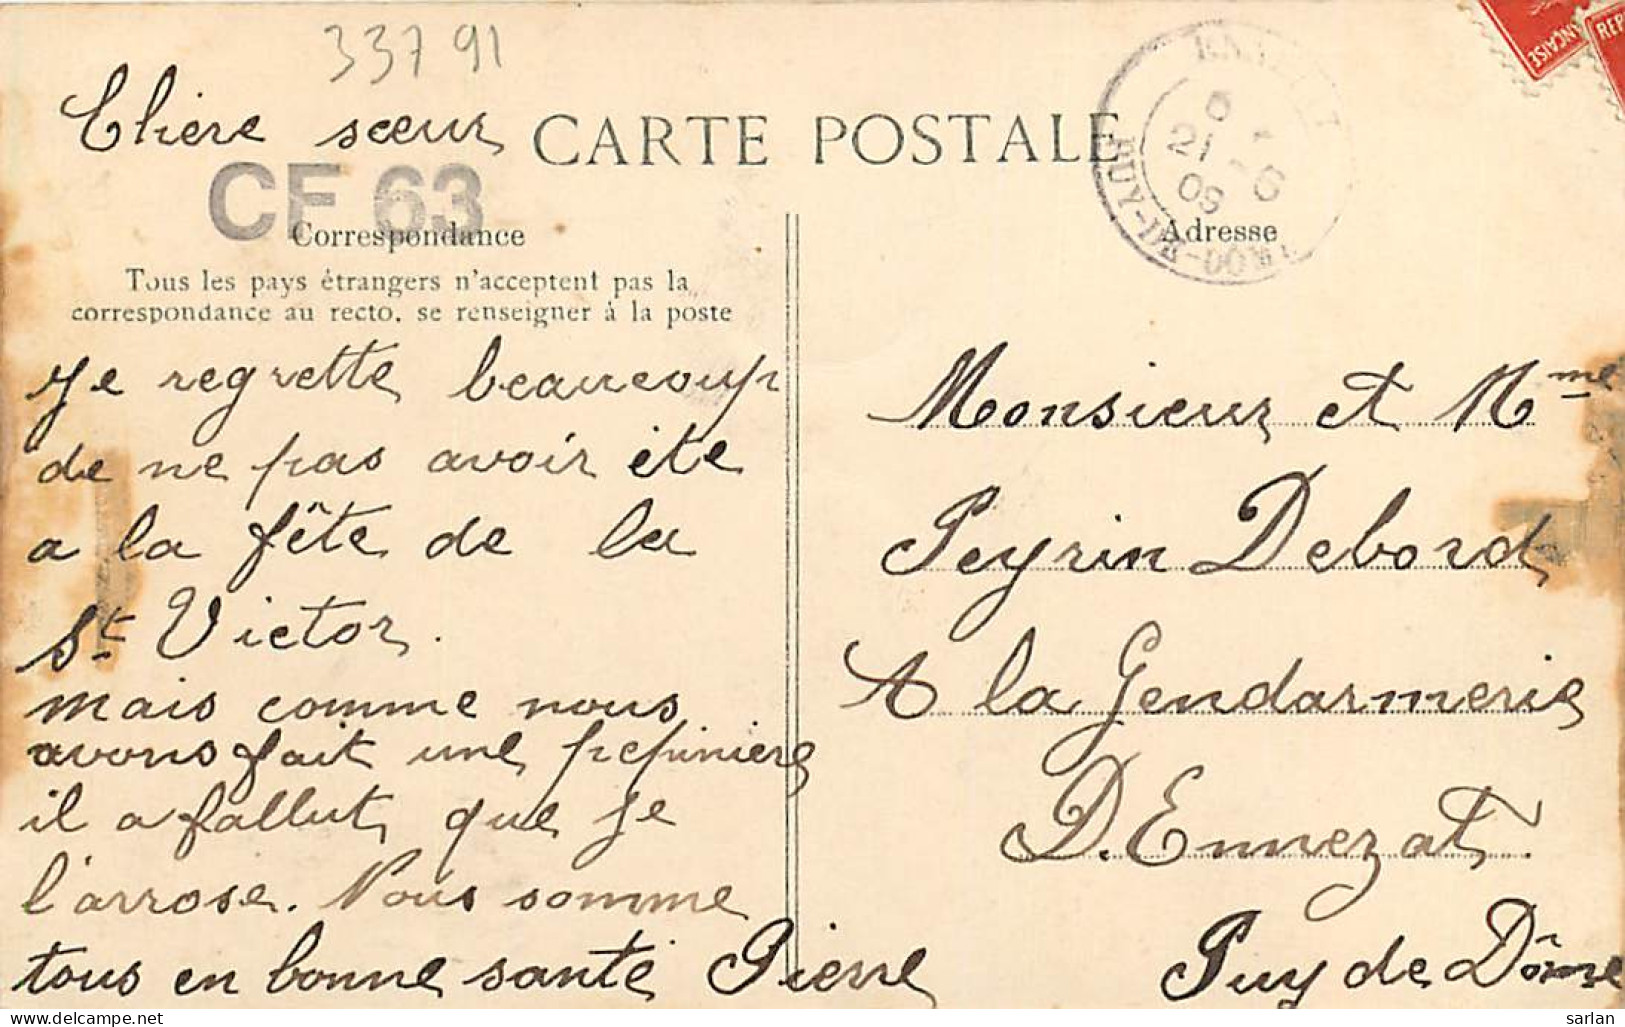 33791
Chère sœur
CARTE POSTALE
CF 63
Correspondance
Tous les pays étrangers n'acceptent pas la
correspondance au recto, se renseigner à la poste
Je regrette beaucoup
de ne pas avoir été
a la fête de la
St Victor.
mais comme nous
avons fait une pepiniere
il a fallut que je
l'arrose. Nous somme
tous en bonne santé Pierre
21 -6
09
PUY-DE-DOME
ÇAISE
REP
Adresse
Monsieur et Mme
Peyrin Debord
A la Gendarmerie
D. Ennezat
Puy de Dôme
sarlan